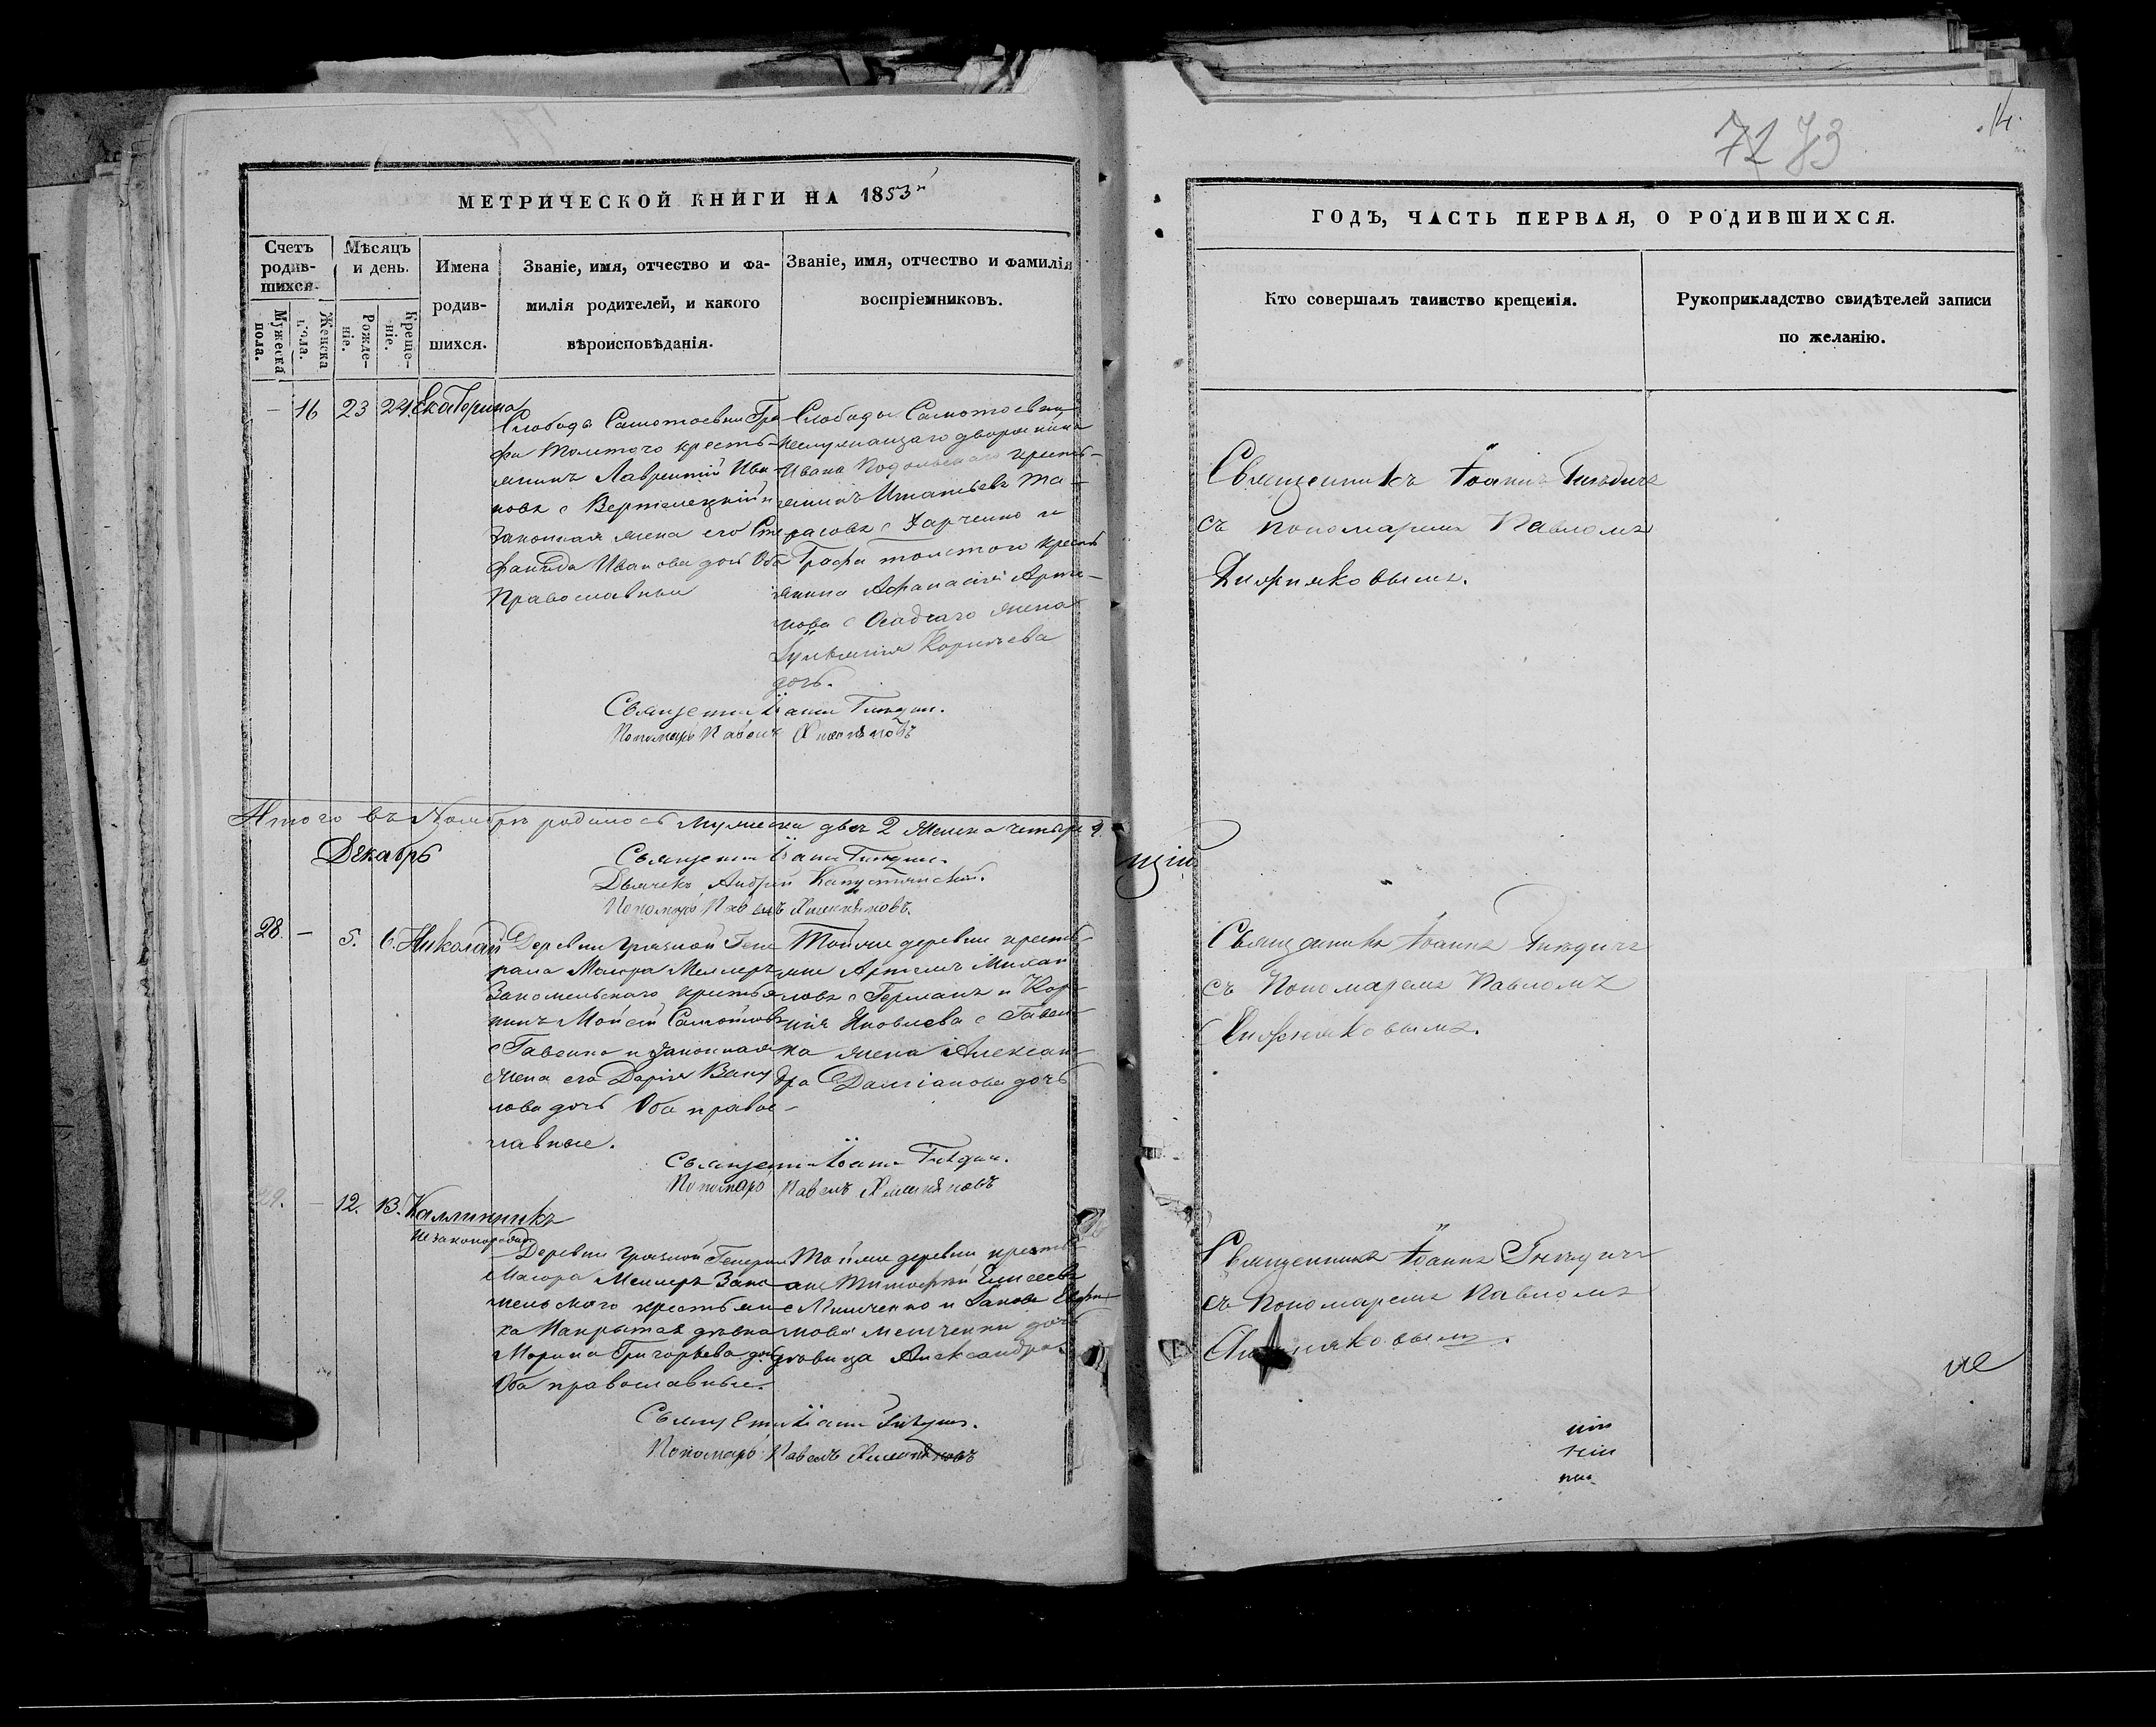 МЕТРИЧЕСКОЙ КНИГИ НА 1853й
Счетъ родив-шихся.
Мужеска пола.
Женска пола.
Мѣсяцъ и день.
Рожде-ніе.
Креще-ніе.
Имена родив-шихся.
Званіе, имя, отчество и фа-
милія родителей, и какого
вѣроисповѣданія.
Званіе, имя, отчество и фамилія
воспріемниковъ.
— 16 23 24. Екатерина
Слободы Самотоевки Гра
фа Толстого кресть-
янинъ Лаврентій Ива
новъ с
законная жена его Сте
фанида Иванова доч Оба
Православныи
Слободы Самотоевки
дворянина
Ивана Подольскаго кресть-
янинъ Игнатьевъ Та-
расовъ с Харченко и
Графа толстого кресть
янина Афанасія Арте-
нова с Осадчаго жена
Корнѣева
доч.
Священни Іоаннъ Гнѣдич.
Пономарь Павелъ
Итого въ Ноябрѣ родилось Мужеска двоя 2 Женска четыре 4.
Декабрь
Священни Іоаннъ Гнѣдич.
Дьячекъ Андрей Капустянскій.
Пономарь Павелъ
28. — 5. 6. Николай
Деревни Грязной Гене
рала Маіора Меллеръ
Закомельскаго крестья
нинъ Мойсей Самойловъ
с Гавенко и законная
жена его Дарія
лова доч Оба правос-
лавные.
Тойже деревни кресть-
яне Артемъ Михаи
ловъ с Германъ и Кор-
нія Яковлева с Гавен-
ка жена Алексан
дра Даміанова дочь
Священни Іоаннъ Гнѣдич.
Пономарь Павелъ
29. — 12. 13. Каллиникъ
Незаконорожд
Деревни Грязной Генерал
Маіора Меллеръ Зако
мельского крестьян
ка Накрытая дѣвка
Марина Григорьева доч
Оба православные.
Тойже деревни кресть-
яне Тимофей Елисеевъ
с и
нова дочь
дѣвица Александра
Священни Іоаннъ Гнѣдич.
Пономарь Павелъ
72 73
14.
ГОДЪ, ЧАСТЬ ПЕРВАЯ, О РОДИВШИХСЯ.
Кто совершалъ таинство крещенія.
Рукоприкладство свидѣтелей записи
по желанію.
Священникъ Іоаннъ Гнѣдичъ
съ пономаремъ Павломъ
Священникъ Іоаннъ Гнѣдичъ
съ Пономаремъ Павломъ
Священникъ Іоаннъ Гнѣдичъ
съ Пономаремъ Павломъ